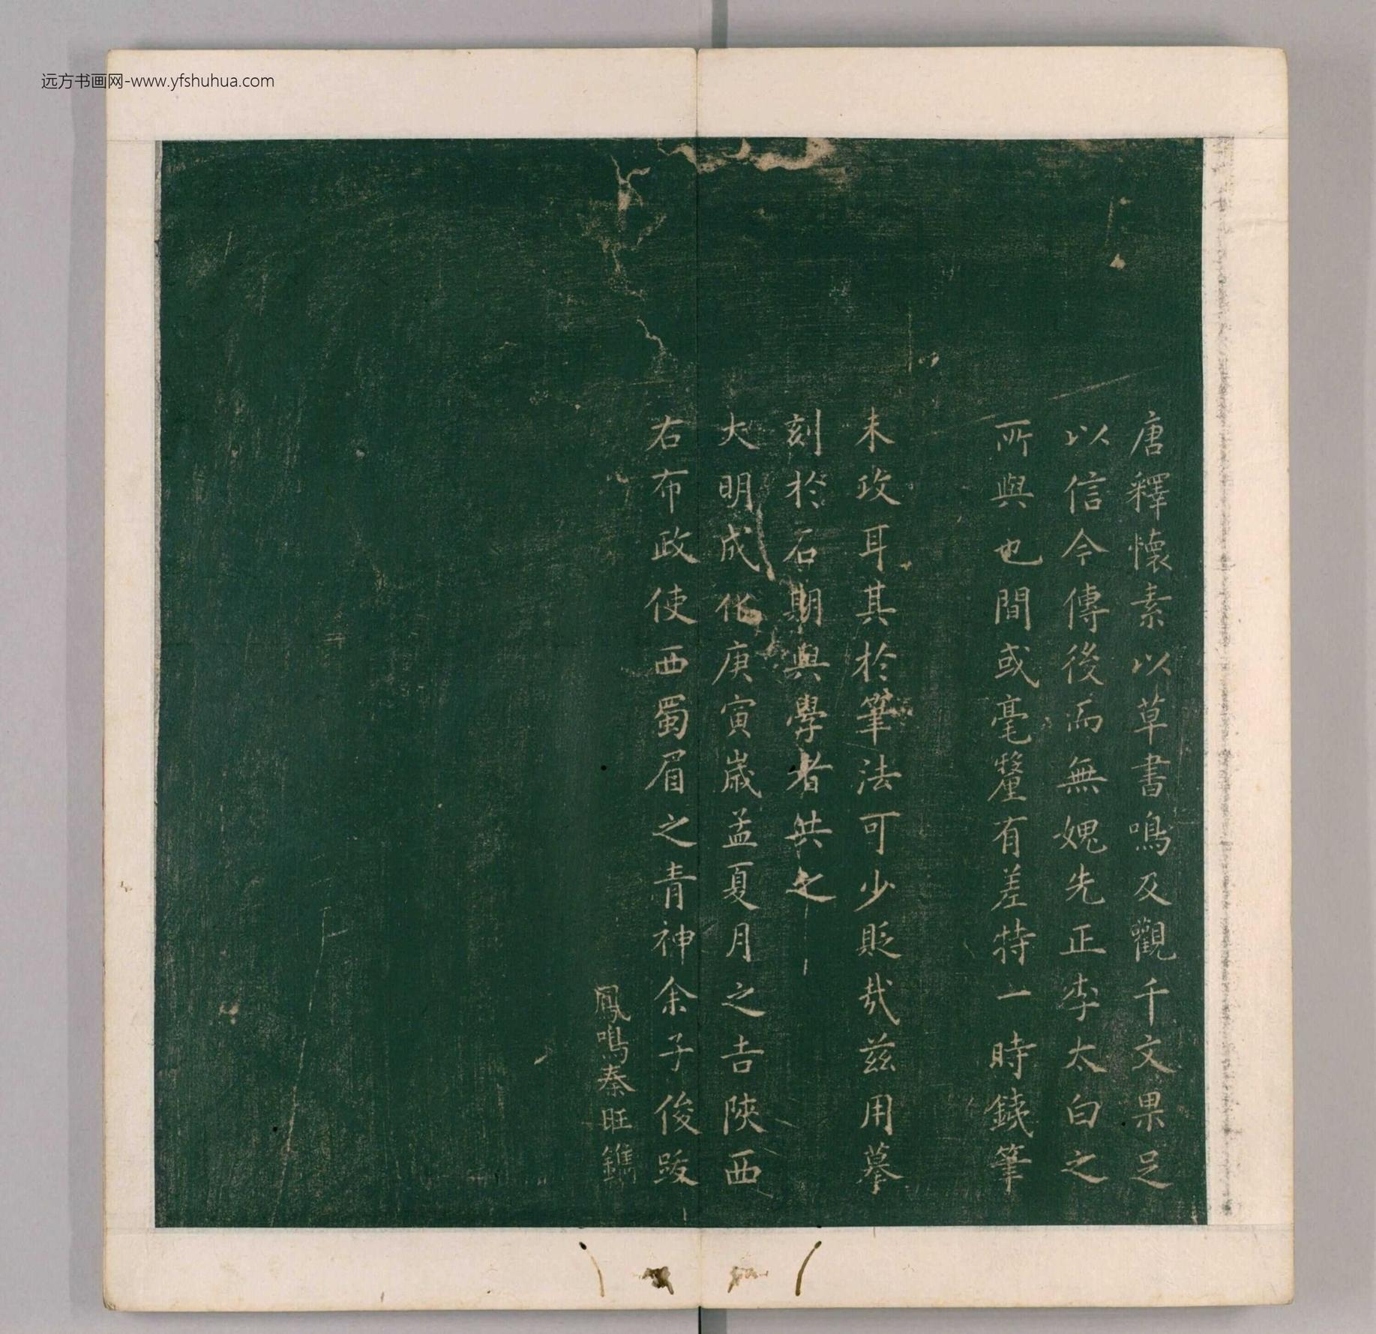 远方书画网-www.yfshuhua.com
唐釋懷素以草書鳴及觀千文果足
以信今傳後而無媿先正李太白之
所與也間或毫釐有差特一時鋟筆
未攻耳其於筆法可少貶哉兹用摹
刻於石期與學者共之
大明成化庚寅歲孟夏月之吉陝西
右布政使西蜀眉之青神余子俊跋
鳳鳴秦旺鐫